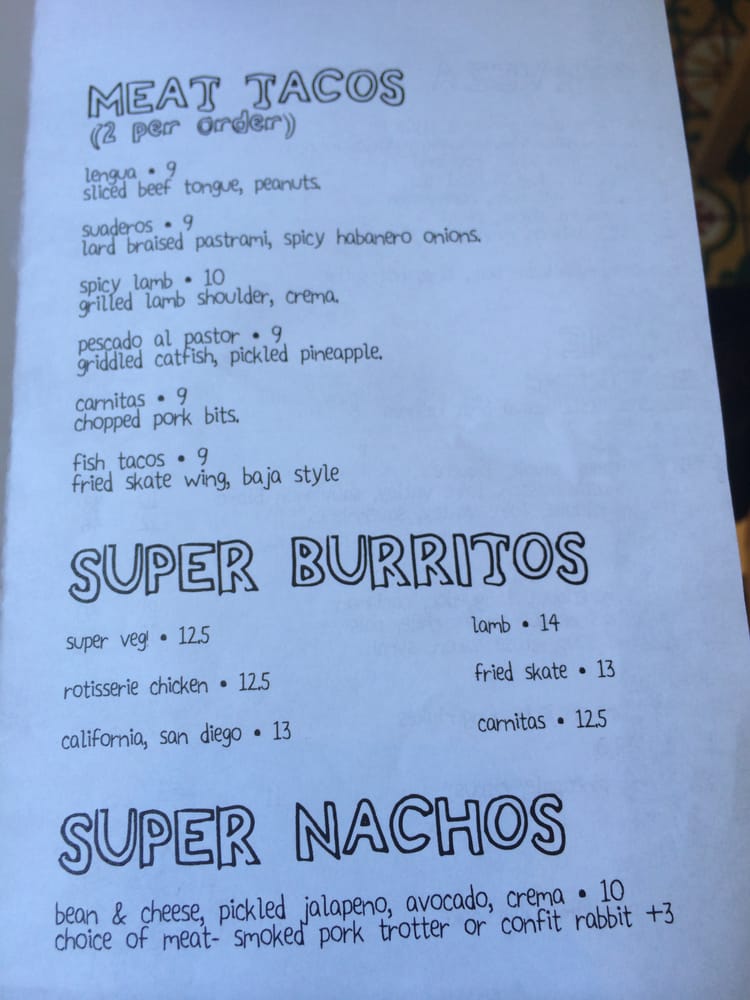 MEAT TACOS
(2 per order)
lengua • 9
sliced beef tongue, peanuts.
suaderos • 9
lard braised pastrami, spicy habanero onions.
spicy lamb • 10
grilled lamb shoulder, crema.
pescado al pastor • 9
griddled catfish, pickled pineapple.
carnitas • 9
chopped pork bits.
fish tacos • 9
fried skate wing, baja style
SUPER BURRITOS
super veg! • 12.5
rotisserie chicken • 12.5
california, san diego • 13
lamb • 14
fried skate • 13
carnitas • 12.5
SUPER NACHOS
bean & cheese, pickled jalapeno, avocado, crema • 10
choice of meat- smoked pork trotter or confit rabbit +3